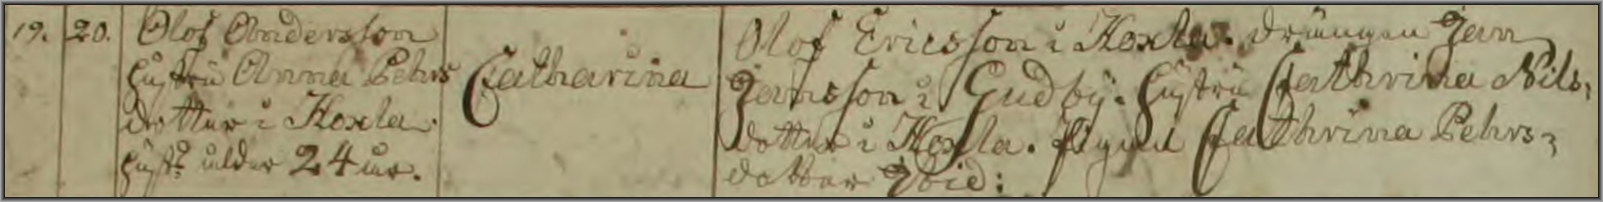 19. 20. Olof Andersson
hustru Anna Pehrs
dotter i Koxla.
hust: ålder 24 år.
Catharina
Olof Ericsson i Koxla. drängen Jan
Jansson i Gudby. hustru Cathrina Nils,
dotter i Koxla. pigan Cathrina Pehrs,
dotter ibid: